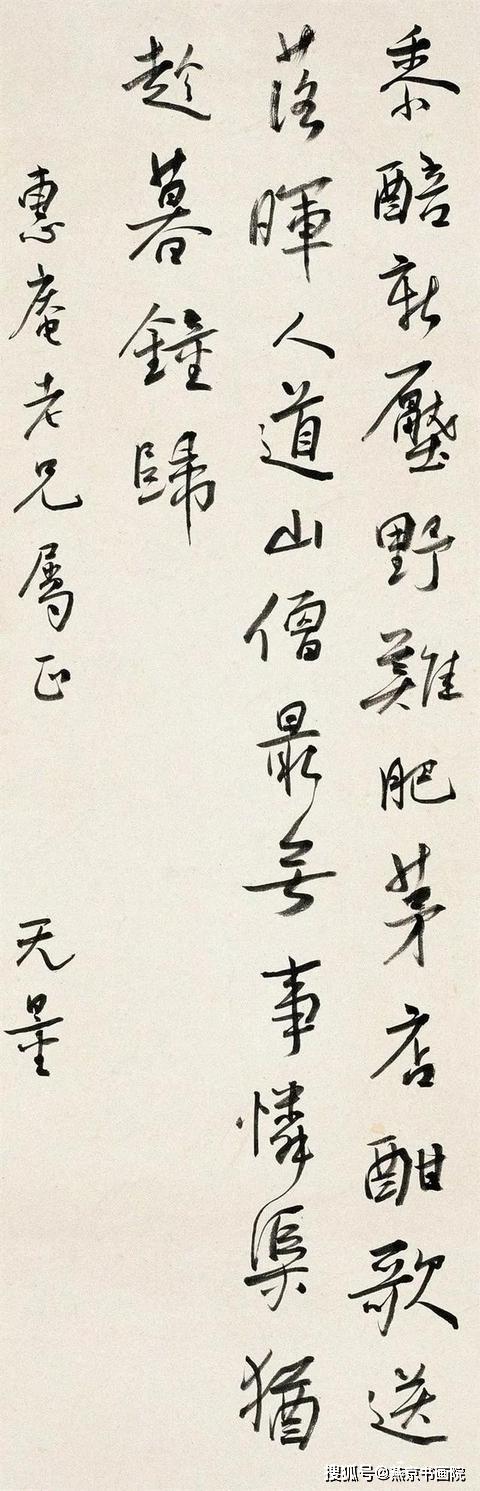 黍醅新壓野雞肥茅店酣歌送
落暉人道山僧最無事憐渠猶
趁暮鐘歸
惠庵老兄屬正 无量
搜狐号@燕京书画院